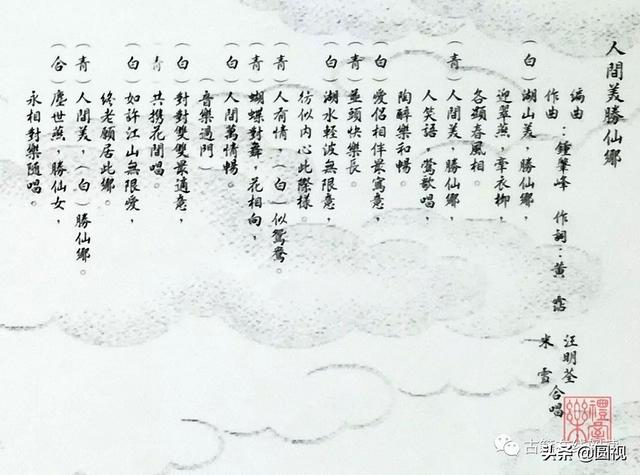 人間美勝仙鄉
編曲
作曲：鍾肇峰 作詞：黃霑
汪明荃
米雪
合唱
（白）湖山美，勝仙鄉，
迎翠燕，牽衣柳，
各顯春風相。
（青）人間美，勝仙鄉，
人笑語，鶯歌唱，
陶醉樂和暢。
（白）愛侶相伴最寫意，
（青）並頭快樂長。
（白）湖水輕波無限意，
彷似內心此際樣。
（青）人有情，（白）似鴛鴦。
（青）蝴蝶對舞，花相向，
（白）人間萬情暢。
（音樂過門）
（白）對對雙雙最適意，
青 共携花間唱。
（白）如許江山無限愛，
終老願居此鄉。
（青）人間美，（白）勝仙鄉。
（合）塵世燕，勝仙女，
永相對樂隨唱。
头条 @圆视